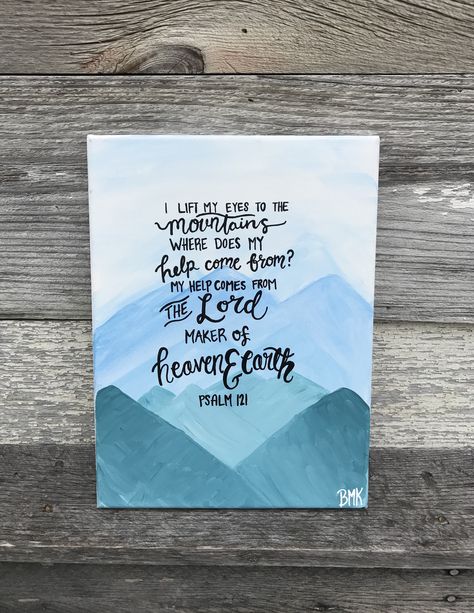 I LIFT MY EYES TO THE
mountains
WHERE DOES MY
help come from?
MY HELP COMES FROM
THE Lord
MAKER OF
heaven & earth
PSALM 121
BMK